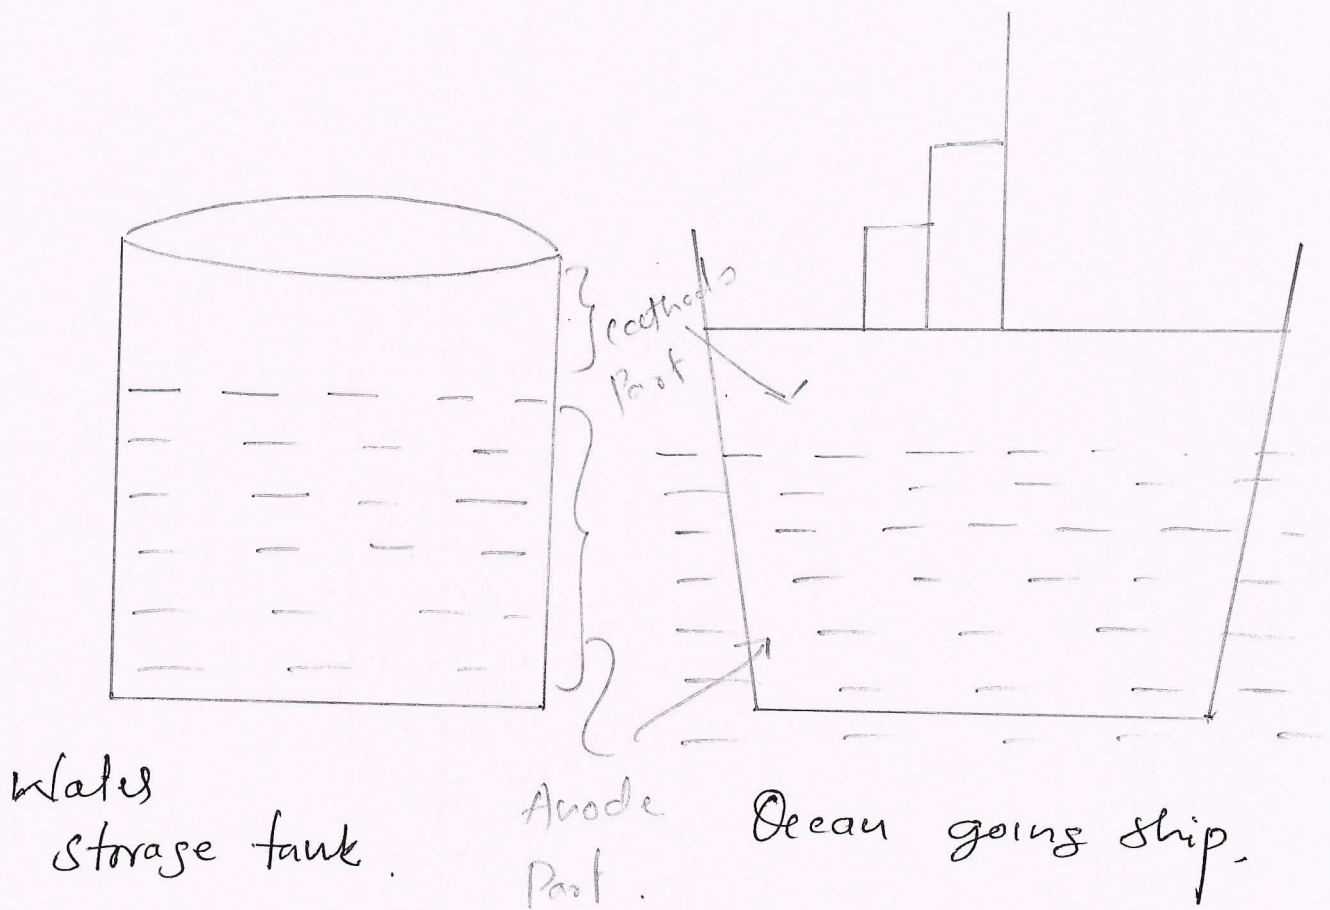 Cathodic
Part
Water
storage tank.
Anode
Part.
Ocean going ship.